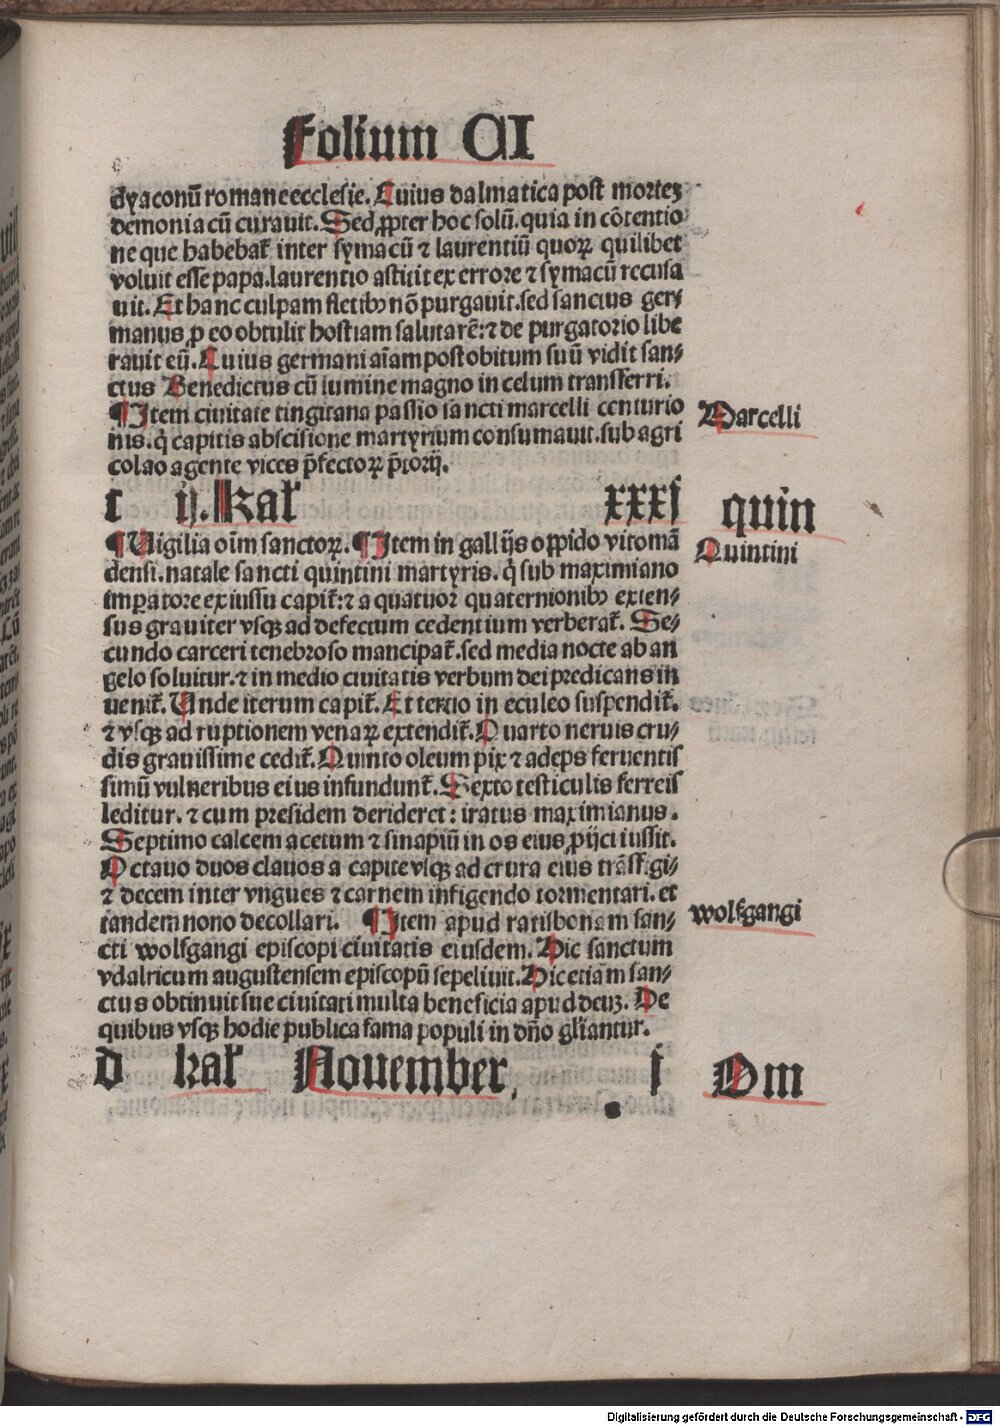 Folium CI
dyaconū romane ecclesie. Cuius dalmatica post mortez
demoniacū curauit. Sed ꝓpter hoc solū. quia in cōtentio
ne que habebat᷑ inter symacū ⁊ laurentiū quoꝝ quilibet
voluit esse papa. laurentio astitit ex errore ⁊ symacū recusa
uit. Et hanc culpam fletibꝰ nō purgauit. sed sanctus ger⸗
manus ꝓ eo obtulit hostiam salutarē: ⁊ de purgatorio libe
rauit eū. Cuius germani aīam post obitum suū vidit san⸗
ctus Benedictus cū lumine magno in celum transferri.
¶ Item ciuitate tingitana passio sancti marcelli centurio
nis. q̇ capitis abscisione martyrium consumauit. sub agri
colao agente vices p̄fectoꝝ p̄torij.
Marcelli
c ij. kal᷑ xxxj quin
¶ Vigilia oīm sanctoꝝ. ¶ Item in gallijs oppido vitomā
densi. natale sancti quintini martyris. q̇ sub maximiano
Quintini
imꝑatore ex iussu capit᷑: ⁊ a quatuor quaternionibꝰ exten⸗
sus grauiter vsqꝫ ad defectum cedentium verberat᷑. Se⸗
cundo carceri tenebroso mancipat᷑. sed media nocte ab an
gelo soluitur. ⁊ in medio ciuitatis verbum dei predicans in
uenit᷑. Unde iterum capit᷑. Et tertio in eculeo suspendit᷑.
⁊ vsqꝫ ad ruptionem venaꝝ extendit᷑. Quarto neruis cru⸗
dis grauissime cedit᷑. Quinto oleum pix ⁊ adeps feruentis
simū vulneribus eius infundunt᷑. Sexto testiculis ferreis
leditur. ⁊ cum presidem derideret: iratus maximianus.
Septimo calcem acetum ⁊ sinapiū in os eius ꝓijci iussit.
Octauo duos clauos a capite vsqꝫ ad crura eius trāsfigi⸗
⁊ decem inter vngues ⁊ carnem infigendo tormentari. et
tandem nono decollari. ¶ Item apud ratisbonam san⸗
wolfgangi
cti wolfgangi episcopi ciuitatis eiusdem. Hic sanctum
vdalricum augustensem episcopū sepeliuit. Hic etiam san⸗
ctus obtinuit sue ciuitati multa beneficia apud deuꝫ. De
quibus vsqꝫ hodie publica fama populi in dn̄o gl̄iantur.
d kal᷑ Nouember. j Om
Digitalisierung gefördert durch die Deutsche Forschungsgemeinschaft - DFG